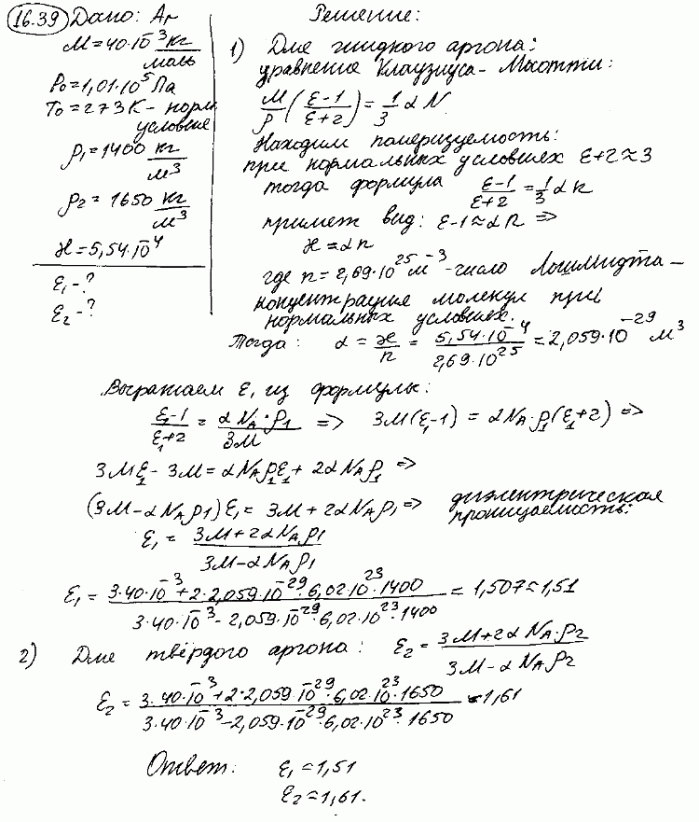 16.39 Дано: Ar
M = 40·10⁻³ кг/моль
P₀ = 1,01·10⁵ Па
T₀ = 273 K - норм. условия
ρ₁ = 1400 кг/м³
ρ₂ = 1650 кг/м³
ϰ = 5,54·10⁻⁴
ε₁ - ?
ε₂ - ?
Решение:
1) Для жидкого аргона:
уравнение Клаузиуса - Мосотти:
M/ρ ((ε-1)/(ε+2)) = 1/3 αN
Находим поляризуемость:
при нормальных условиях ε+2≈3
тогда формула (ε-1)/(ε+2) = 1/3 αn
примет вид: ε-1≈αn ⇒
ϰ = αn
где n = 2,69·10²⁵ м⁻³ - число Лошмидта -
концентрация молекул при
нормальных условиях.
Тогда: α = ϰ/n = (5,54·10⁻⁴)/(2,69·10²⁵) = 2,059·10⁻²⁹ м³
Выражаем ε₁ из формулы:
(ε₁-1)/(ε₁+2) = (αN_A·ρ₁)/(3M) ⇒ 3M(ε₁-1) = αN_A·ρ₁(ε₁+2) ⇒
3Mε₁ - 3M = αN_Aρ₁ε₁ + 2αN_Aρ₁ ⇒
(3M-αN_Aρ₁)ε₁ = 3M+2αN_Aρ₁ ⇒ диэлектрическая проницаемость:
ε₁ = (3M+2αN_Aρ₁)/(3M-αN_Aρ₁)
ε₁ = (3·40·10⁻³+2·2,059·10⁻²⁹·6,02·10²³·1400)/(3·40·10⁻³-2,059·10⁻²⁹·6,02·10²³·1400) = 1,507≈1,51
2) Для твёрдого аргона: ε₂ = (3M+2αN_A·ρ₂)/(3M-αN_Aρ₂)
ε₂ = (3·40·10⁻³+2·2,059·10⁻²⁹·6,02·10²³·1650)/(3·40·10⁻³-2,059·10⁻²⁹·6,02·10²³·1650) = 1,61
Ответ: ε₁ = 1,51
ε₂ = 1,61.